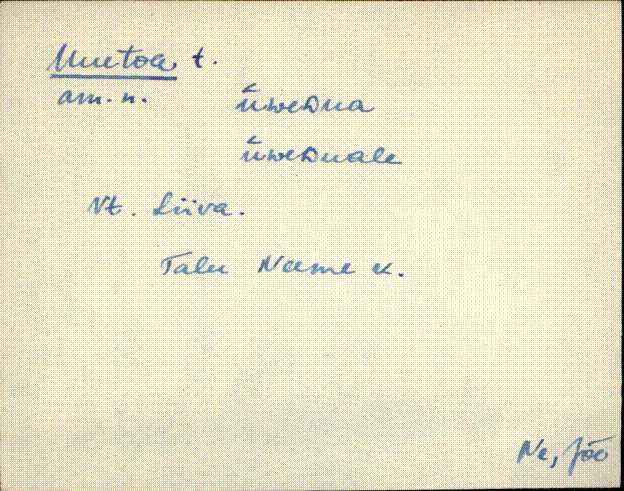 Uuetoa t.
am. n. ūweᴅua
ūweᴅuale
Vt. Liiva.
Talu Neeme k.
Ne, Jõe